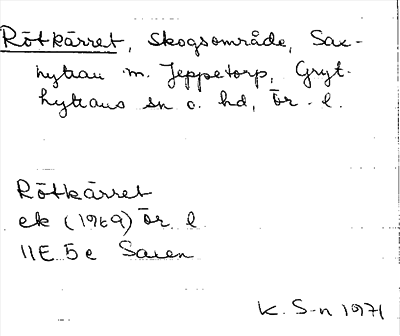 Rötkärret, skogsområde, Sax-
hyttan m. Jeppetorp, Gryt-
hyttans sn o. hd, Ör. l.
Rötkärret
ek (1969) Ör. l
11E 5e Saxen
K. S-n 1971